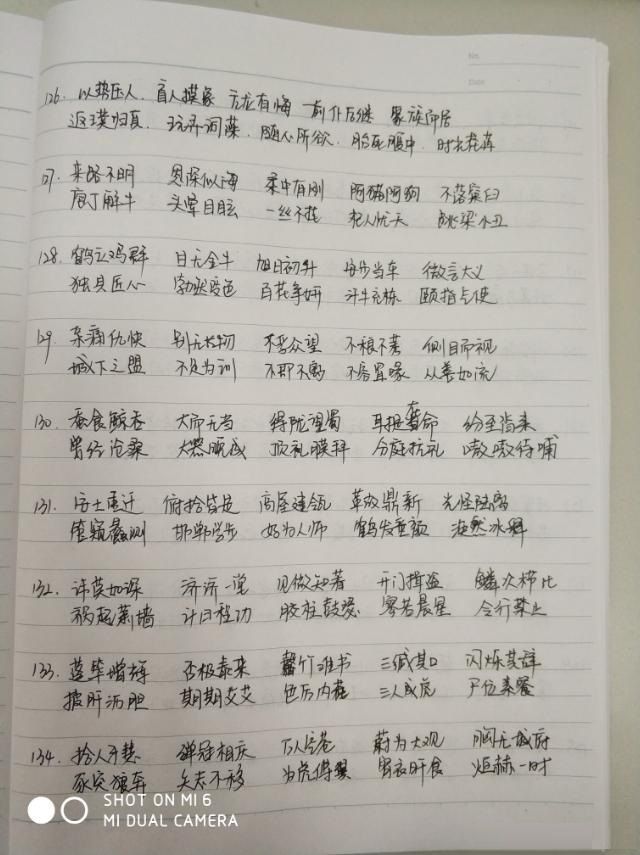 No.
Date
126. 以势压人. 盲人摸象 亢龙有悔 前仆后继 聚族而居
返璞归真. 玩弄词藻. 随心所欲. 胎死腹中. 时乖运舛
127. 来路不明 恩深似海 柔中有刚 阿猫阿狗 不落窠臼
庖丁解牛 头晕目眩 一丝不苟 杞人忧天 跳梁小丑
128. 鹤立鸡群 目无全牛 旭日初升 安步当车 微言大义
独具匠心 勃然变色 百花争妍 汗牛充栋 颐指气使
129. 亲痛仇快 别无长物 不孚众望 不稂不莠 侧目而视
城下之盟 不足为训 不即不离 不容置喙 从善如流
130. 蚕食鲸吞 大而无当 得陇望蜀 耳提面命 纷至沓来
曾经沧桑 大器晚成 顶礼膜拜 分庭抗礼 嗷嗷待哺
131. 安土重迁 俯拾皆是 高屋建瓴 革故鼎新 光怪陆离
管窥蠡测 邯郸学步 好为人师 鹤发童颜 涣然冰释
132. 讳莫如深 济济一堂 见微知著 开门揖盗 鳞次栉比
祸起萧墙 计日程功 胶柱鼓瑟 寥若晨星 令行禁止
133. 蓝筚增辉 否极泰来 罄竹难书 三缄其口 闪烁其辞
披肝沥胆 期期艾艾 色厉内荏 三人成虎 尸位素餐
134. 拾人牙慧 弹冠相庆 万人空巷 蔚为大观 胸无城府
豕突狼奔 矢志不移 为虎傅翼 宵衣旰食 烜赫一时
SHOT ON MI 6
MI DUAL CAMERA